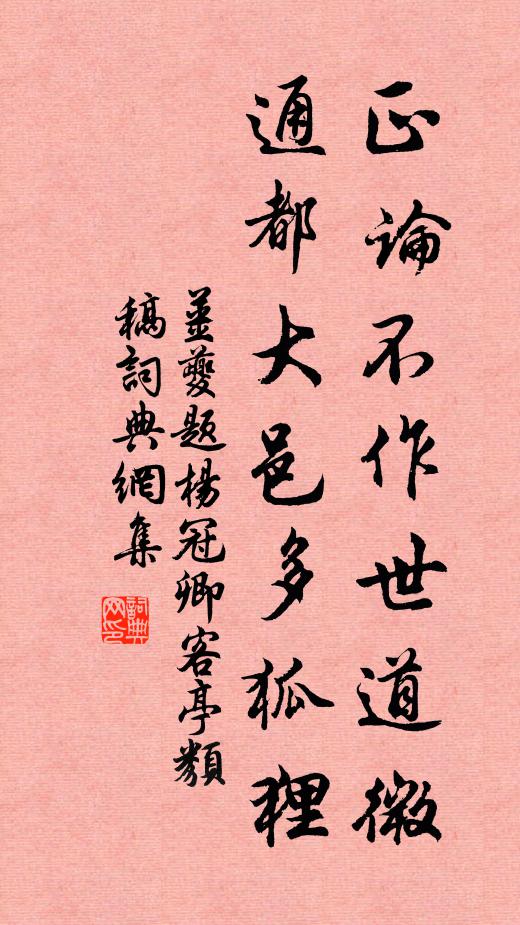 正論不作世道微
通都大邑多狐狸
姜夔題楊冠卿客亭類
稿詞典網集
詞典網印